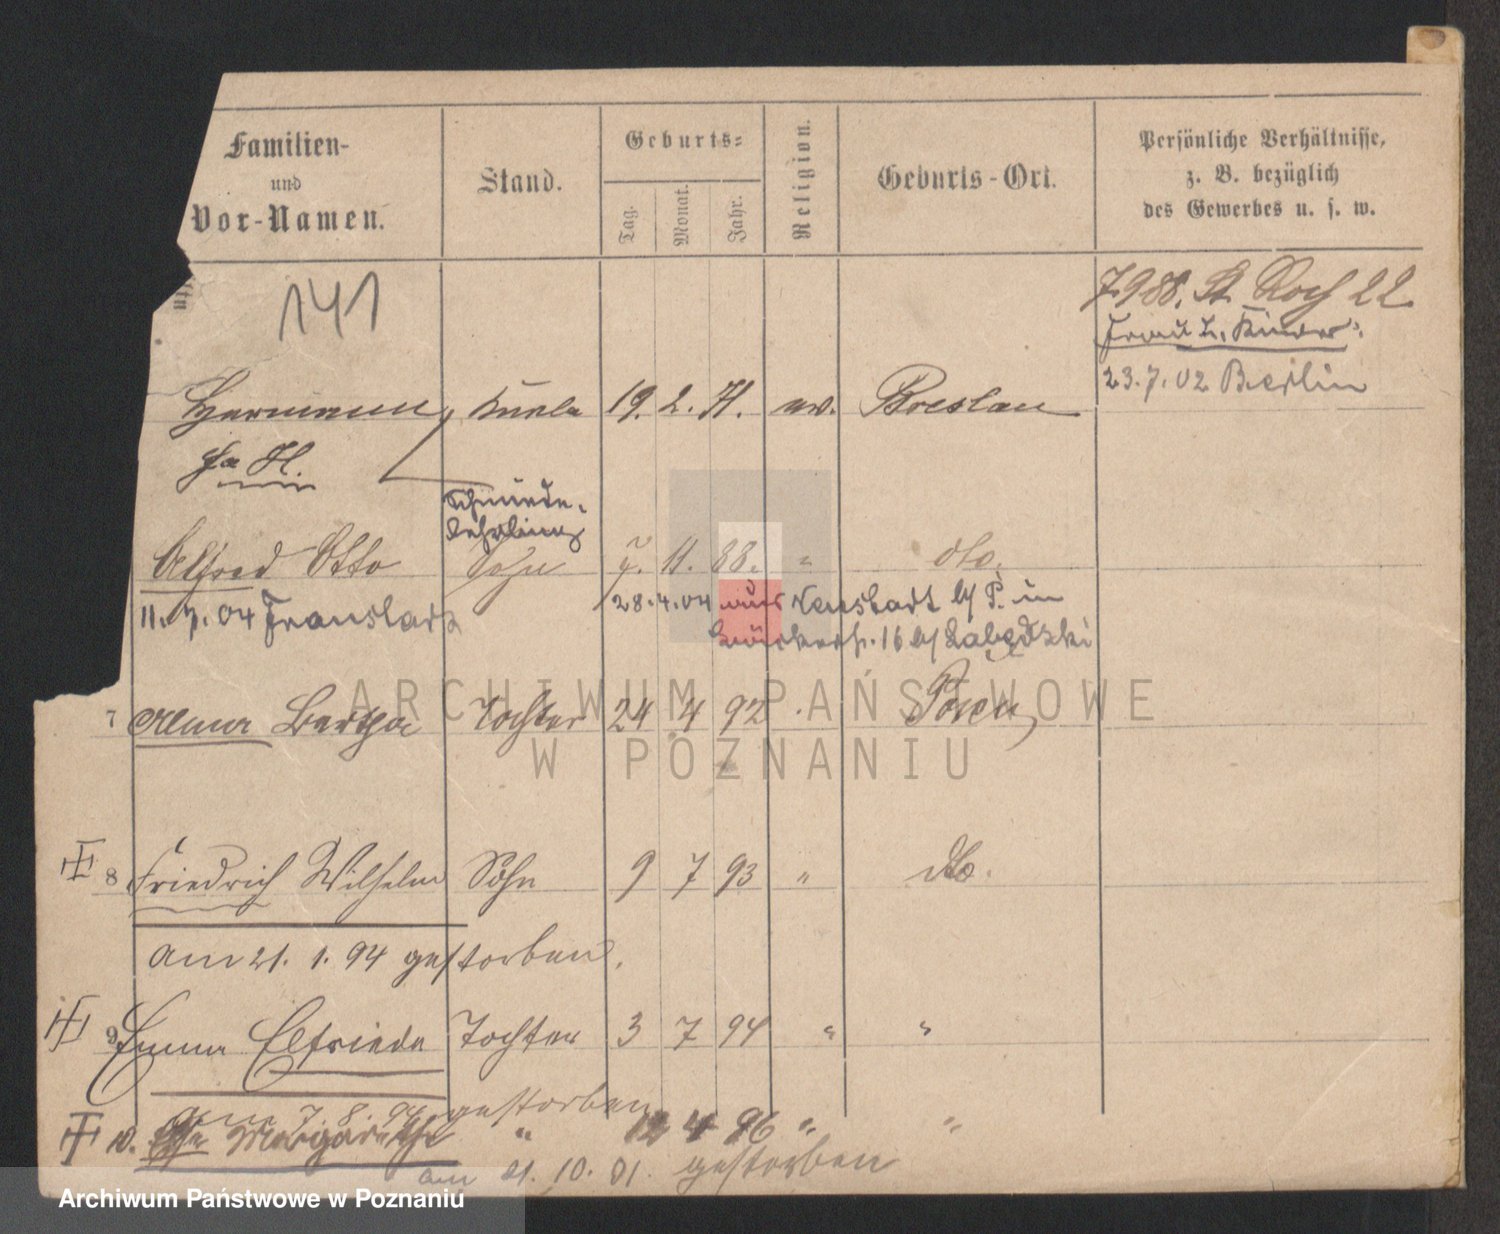 Familien-
und
Vor-Namen.
Stand.
Geburts-
Tag.
Monat.
Jahr.
Religion.
Geburts-Ort.
Persönliche Verhältnisse,
z. B. bezüglich
des Gewerbes u. s. w.
141
7.9.88. St. Roch 22
Frau u. Kinder:
23.7.02 Berlin
Hermann, 19. 2. ev. Breslau
Schmiede-
Lehrling
Alfred Otto Sohn 7. 11. 88. " dto.
11. 7. 04 Fraustadt
28.4.04 aus Neustadt b/ P. in
16 b/
7 Alma Bertha Tochter 24 4 92 Posen
8 Friedrich Wilhelm Sohn 9 7 93 " dto.
am 21. 1. 94 gestorben.
9 Emma Elfriede Tochter 3 7 94 " "
am 7. 8. 94 gestorben
10. Margarethe " 12 4 96 " "
am 21. 10. 01. gestorben
ARCHIWUM PAŃSTWOWE
W POZNANIU
Archiwum Państwowe w Poznaniu